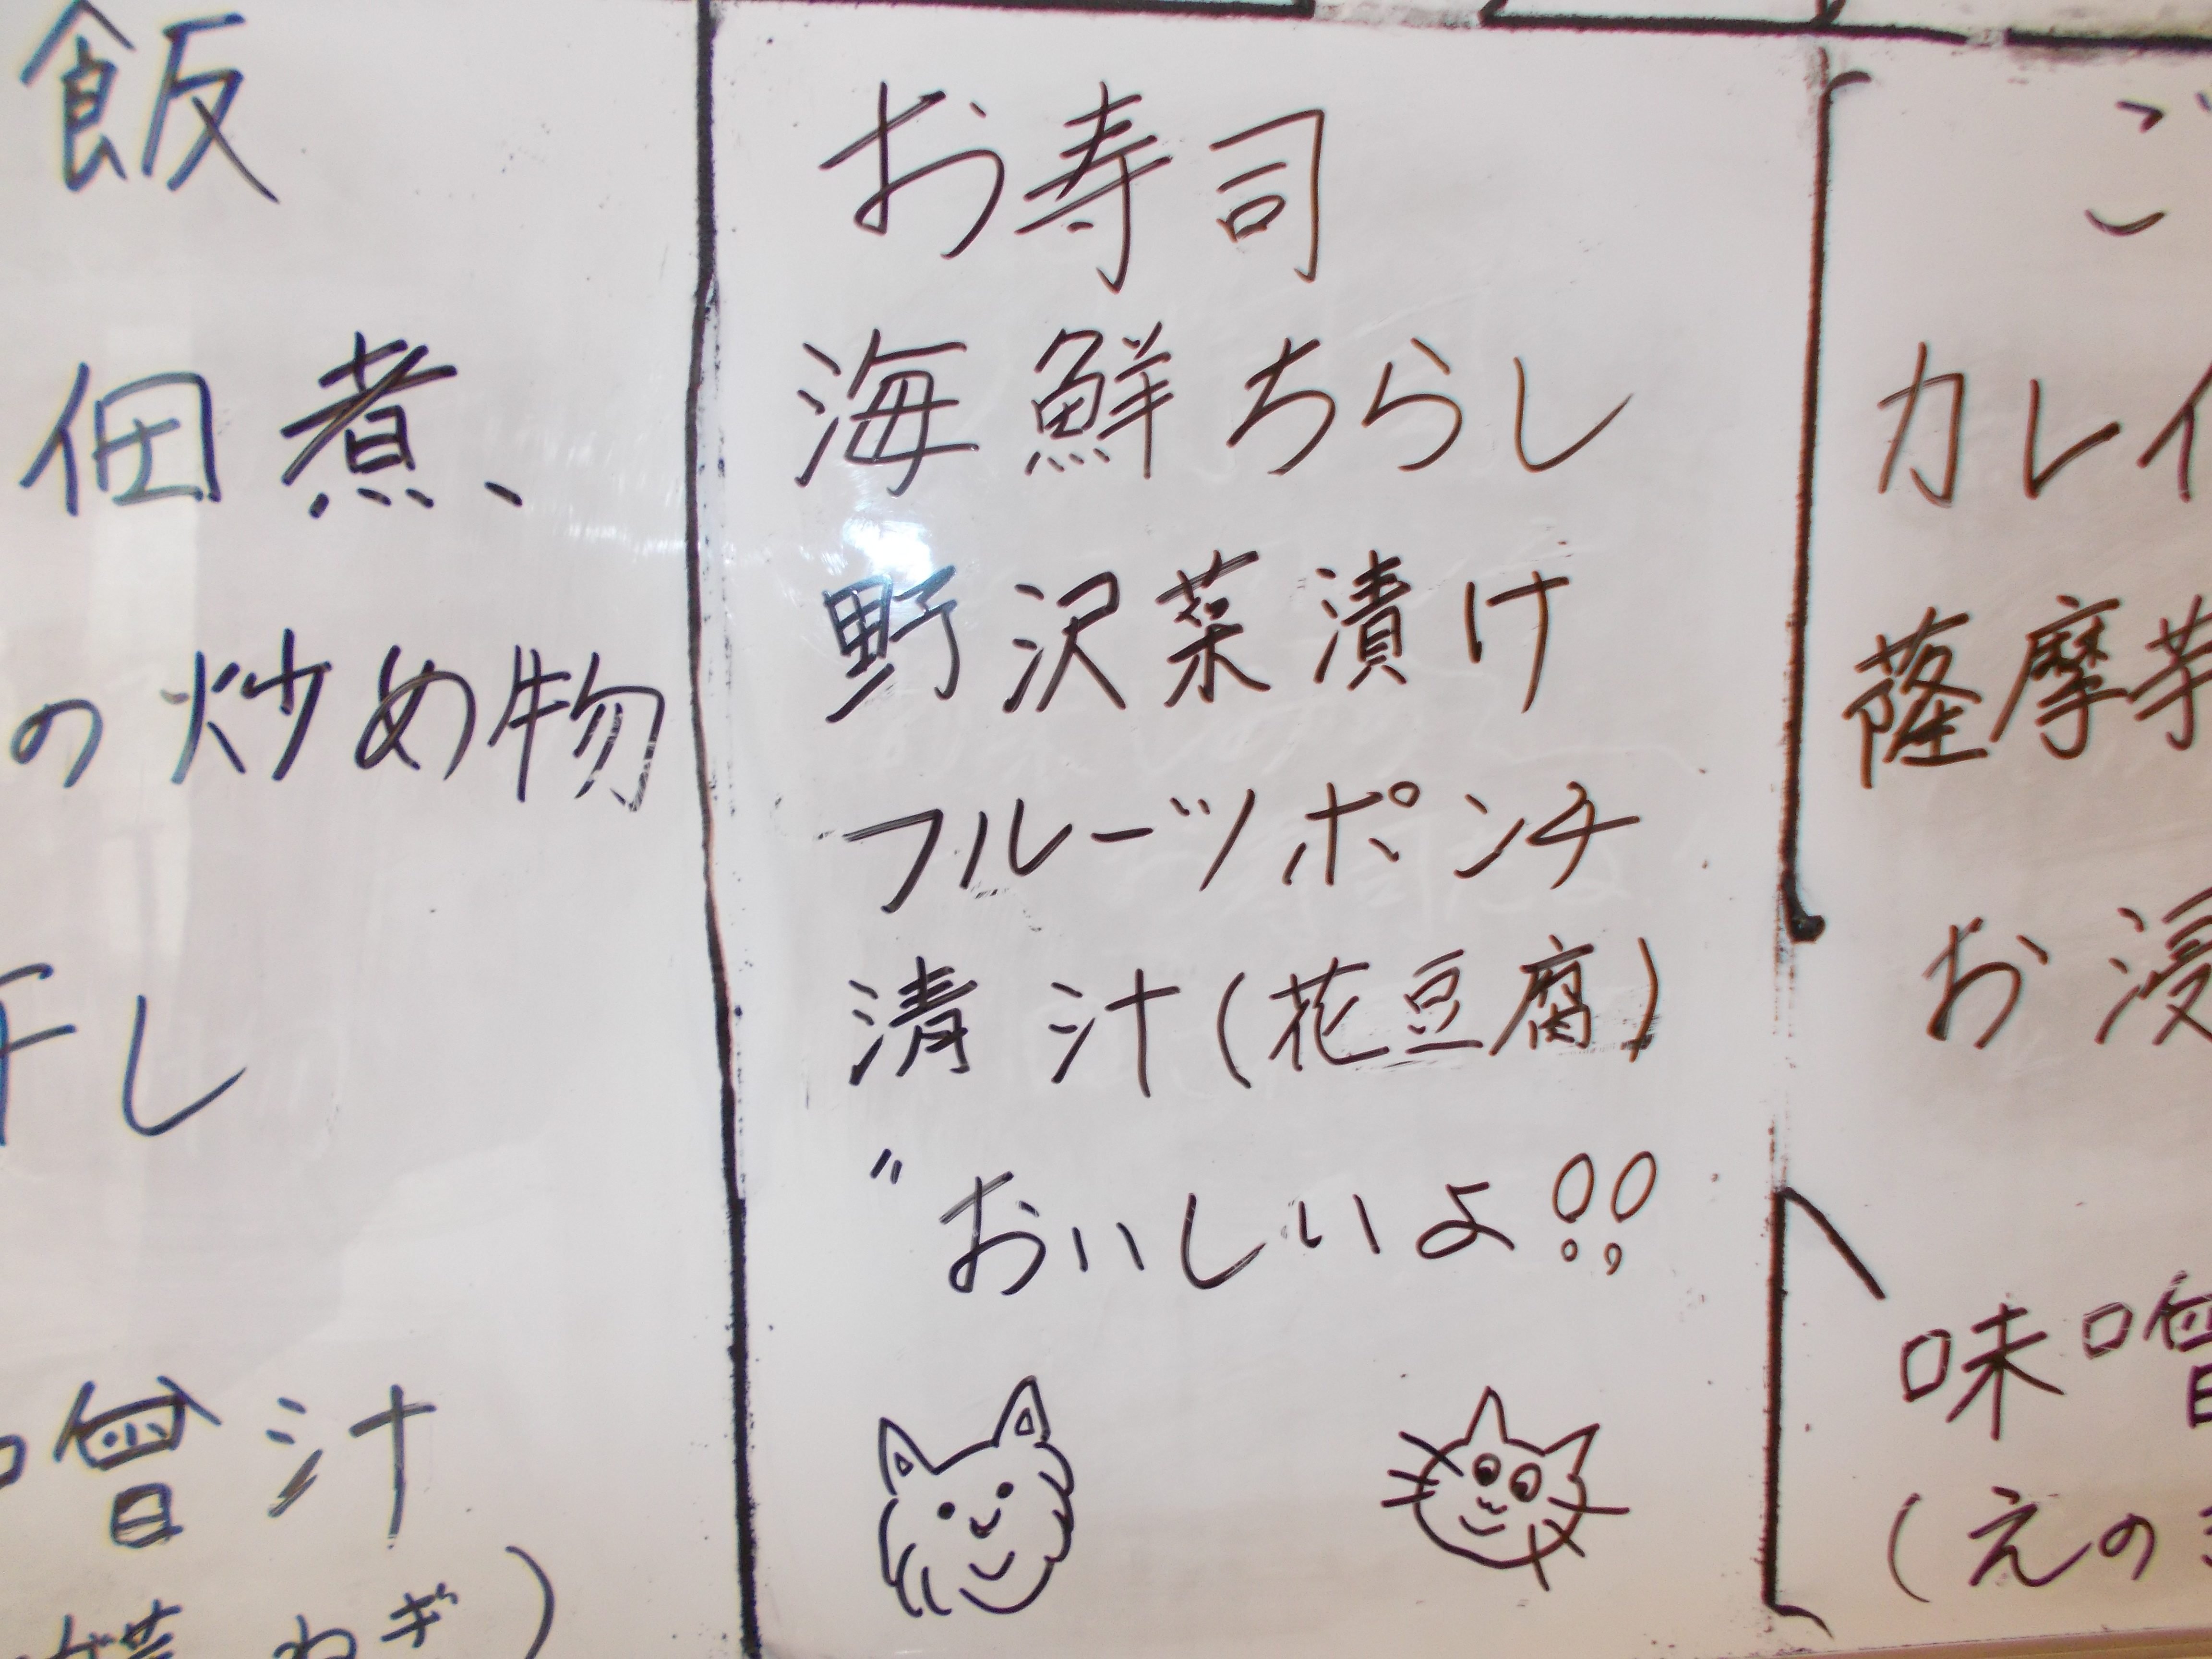 飯
佃煮、
の炒め物
干し
噌汁
ねぎ)
お寿司
海鮮ちらし
野沢菜漬け
フルーツポンチ
清汁(花豆腐)
〃おいしいよ!!
ご
カレイ
薩摩芋
お浸
味噌
(えのき